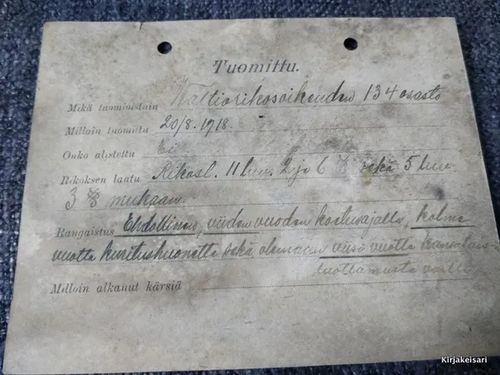 Tuomittu.
Mikä tuomioistuin Waltiorikosoikeuden 134 osasto
Milloin tuomittu 20/8. 1918.
Onko alistettu Ei
Rikoksen laatu Rikosl. 11 luv. 2 ja 6 §§ sekä 5 luv.
3 § mukaan.
Rangaistus Ehdollinen, viiden vuoden koetusajalla, kolme
vuotta kuritushuonetta sekä olemaan viisi vuotta kansalais
luottamusta vailla
Milloin alkanut kärsiä
Kirjakeisari